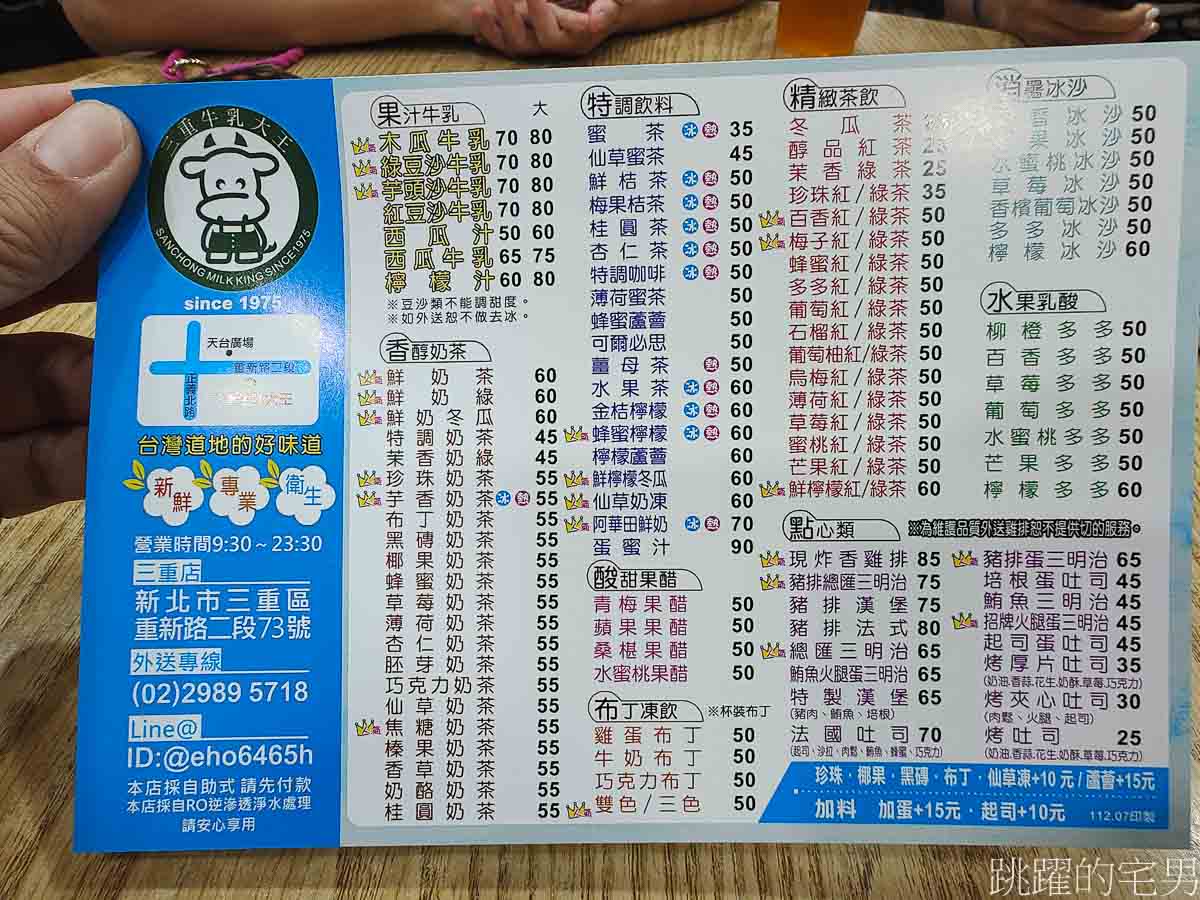 三重牛乳大王
SANCHONG MILK KING SINCE1975
since 1975
天台廣場
重新路二段
正義北路
台灣道地的好味道
新鮮 專業 衛生
營業時間9:30～23:30
三重店
新北市三重區
重新路二段73號
外送專線
(02)2989 5718
Line@
ID:@eho6465h
本店採自助式 請先付款
本店採自RO逆滲透淨水處理
請安心享用
果汁牛乳 大
木瓜牛乳 70 80
綠豆沙牛乳 70 80
芋頭沙牛乳 70 80
紅豆沙牛乳 70 80
西瓜汁 50 60
西瓜牛乳 65 75
檸檬汁 60 80
※豆沙類不能調甜度。
※如外送恕不做去冰。
香醇奶茶
鮮奶茶 60
鮮奶綠 60
鮮奶冬瓜 60
特調奶茶 45
茉香奶綠 45
珍珠奶茶 55
芋香奶茶 冰 熱 55
布丁奶茶 55
黑磚奶茶 55
椰果奶茶 55
蜂蜜奶茶 55
草莓奶茶 55
薄荷奶茶 55
杏仁奶茶 55
胚芽奶茶 55
巧克力奶茶 55
仙草奶茶 55
焦糖奶茶 55
榛果奶茶 55
香草奶茶 55
奶酪奶茶 55
桂圓奶茶 55
特調飲料
蜜茶 冰 熱 35
仙草蜜茶 45
鮮桔茶 冰 熱 50
梅果桔茶 冰 熱 50
桂圓茶 冰 熱 50
杏仁茶 冰 熱 50
特調咖啡 冰 熱 50
薄荷蜜茶 50
蜂蜜蘆薈 50
可爾必思 50
薑母茶 熱 50
水果茶 冰 熱 60
金桔檸檬 冰 熱 60
蜂蜜檸檬 冰 熱 60
檸檬蘆薈 60
鮮檸檬冬瓜 60
仙草奶凍 60
阿華田鮮奶 冰 熱 70
蛋蜜汁 90
酸甜果醋
青梅果醋 50
蘋果果醋 50
桑椹果醋 50
水蜜桃果醋 50
布丁凍飲 ※杯裝布丁
雞蛋布丁 50
牛奶布丁 50
巧克力布丁 50
雙色/三色 50
精緻茶飲
冬瓜茶
醇品紅茶 25
茉香綠茶 25
珍珠紅/綠茶 35
百香紅/綠茶 50
梅子紅/綠茶 50
蜂蜜紅/綠茶 50
多多紅/綠茶 50
葡萄紅/綠茶 50
石榴紅/綠茶 50
葡萄柚紅/綠茶 50
烏梅紅/綠茶 50
薄荷紅/綠茶 50
草莓紅/綠茶 50
蜜桃紅/綠茶 50
芒果紅/綠茶 50
鮮檸檬紅/綠茶 60
消暑冰沙
香冰沙 50
果冰沙 50
水蜜桃冰沙 50
草莓冰沙 50
香檳葡萄冰沙 50
多多冰沙 50
檸檬冰沙 60
水果乳酸
柳橙多多 50
百香多多 50
草莓多多 50
葡萄多多 50
水蜜桃多多 50
芒果多多 50
檸檬多多 60
點心類 ※為維護品質外送雞排恕不提供切的服務。
現炸香雞排 85
豬排總匯三明治 75
豬排漢堡 75
豬排法式 80
總匯三明治 65
鮪魚火腿蛋三明治 65
特製漢堡 65
(豬肉、鮪魚、培根)
法國吐司 70
(起司、沙拉、肉鬆、鮪魚、蜂蜜、巧克力)
豬排蛋三明治 65
培根蛋吐司 45
鮪魚三明治 45
招牌火腿蛋三明治 45
起司蛋吐司 45
烤厚片吐司 35
(奶油.香蒜.花生.奶酥.草莓.巧克力)
烤夾心吐司 30
(肉鬆、火腿、起司)
烤吐司 25
(奶油.香蒜.花生.奶酥.草莓.巧克力)
珍珠・椰果・黑磚・布丁・仙草凍+10元/蘆薈+15元
加料 加蛋+15元・起司+10元
112.07印製
跳躍的宅男